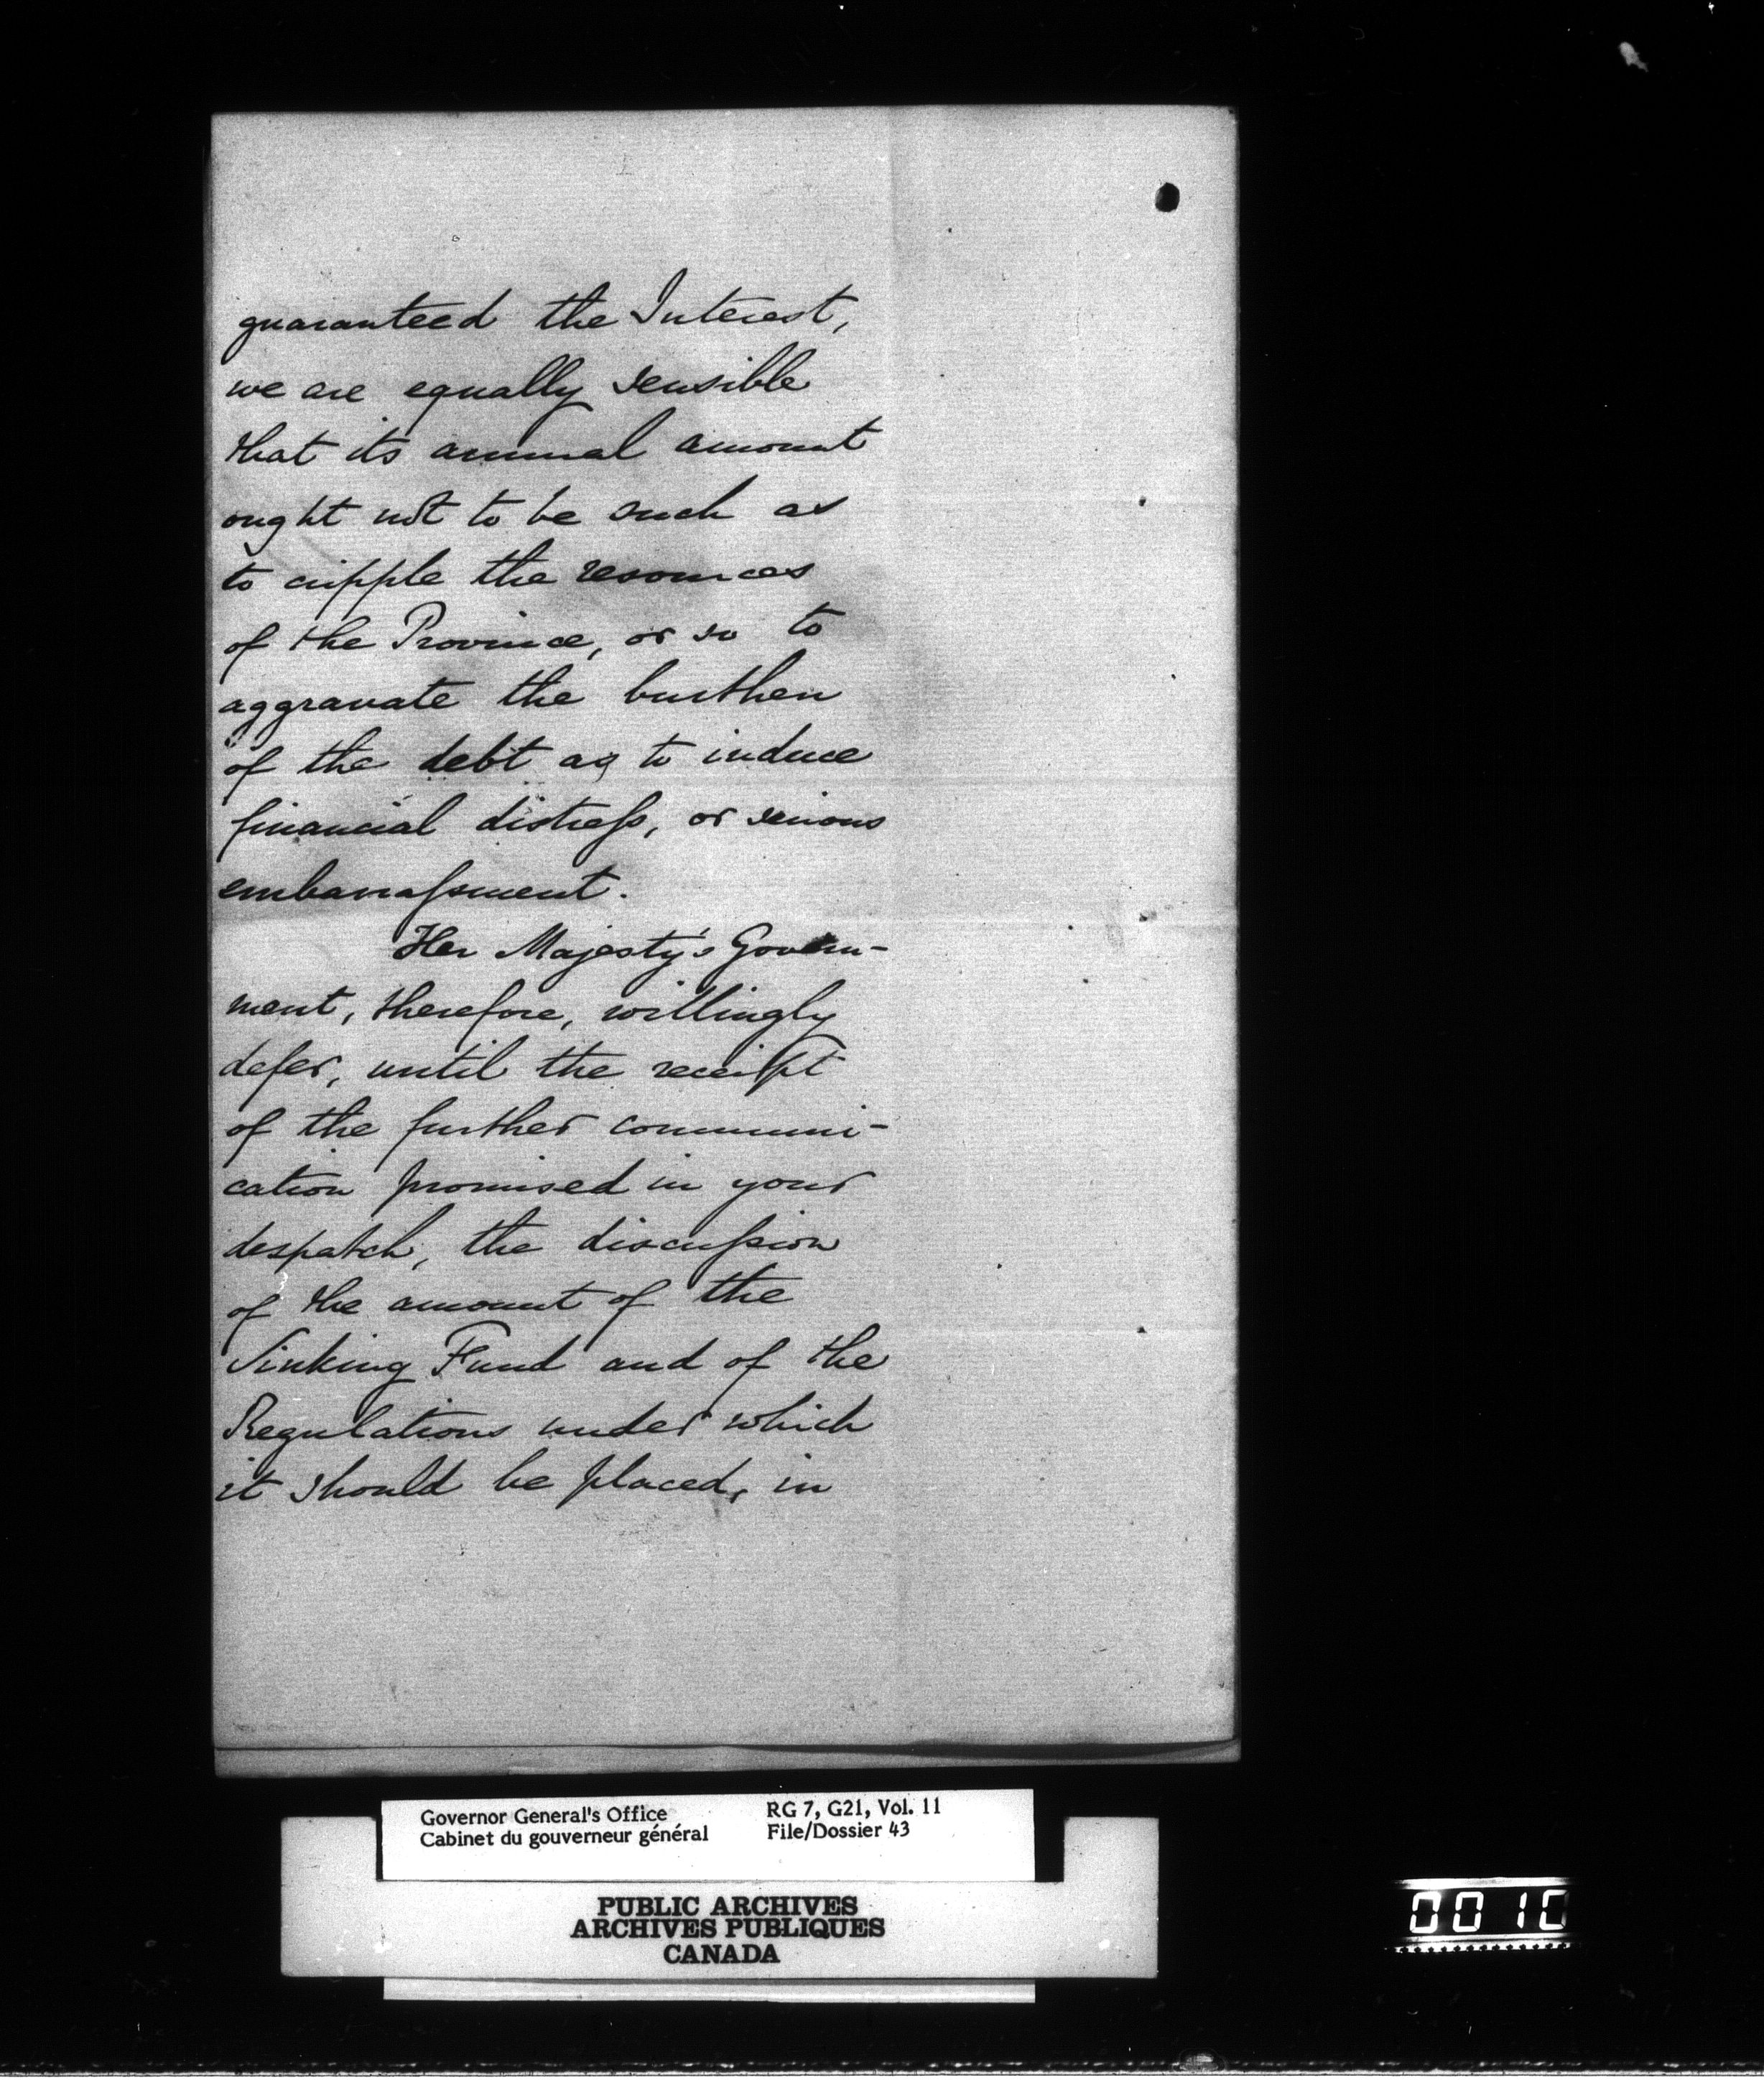 guaranteed the Interest,
we are equally sensible
that its annual amount
ought not to be such as
to cripple the resources
of the Province, or so to
aggravate the burthen
of the debt as to induce
financial distress, or serious
embarrassment.
Her Majesty's Govern-
ment, therefore, willingly
defer, until the receipt
of the further communi-
cation promised in your
despatch, the discussion
of the amount of the
Sinking Fund and of the
Regulations under which
it should be placed, in
Governor General's Office RG 7, G21, Vol. 11
Cabinet du gouverneur général File/Dossier 43
PUBLIC ARCHIVES
ARCHIVES PUBLIQUES
CANADA
0010